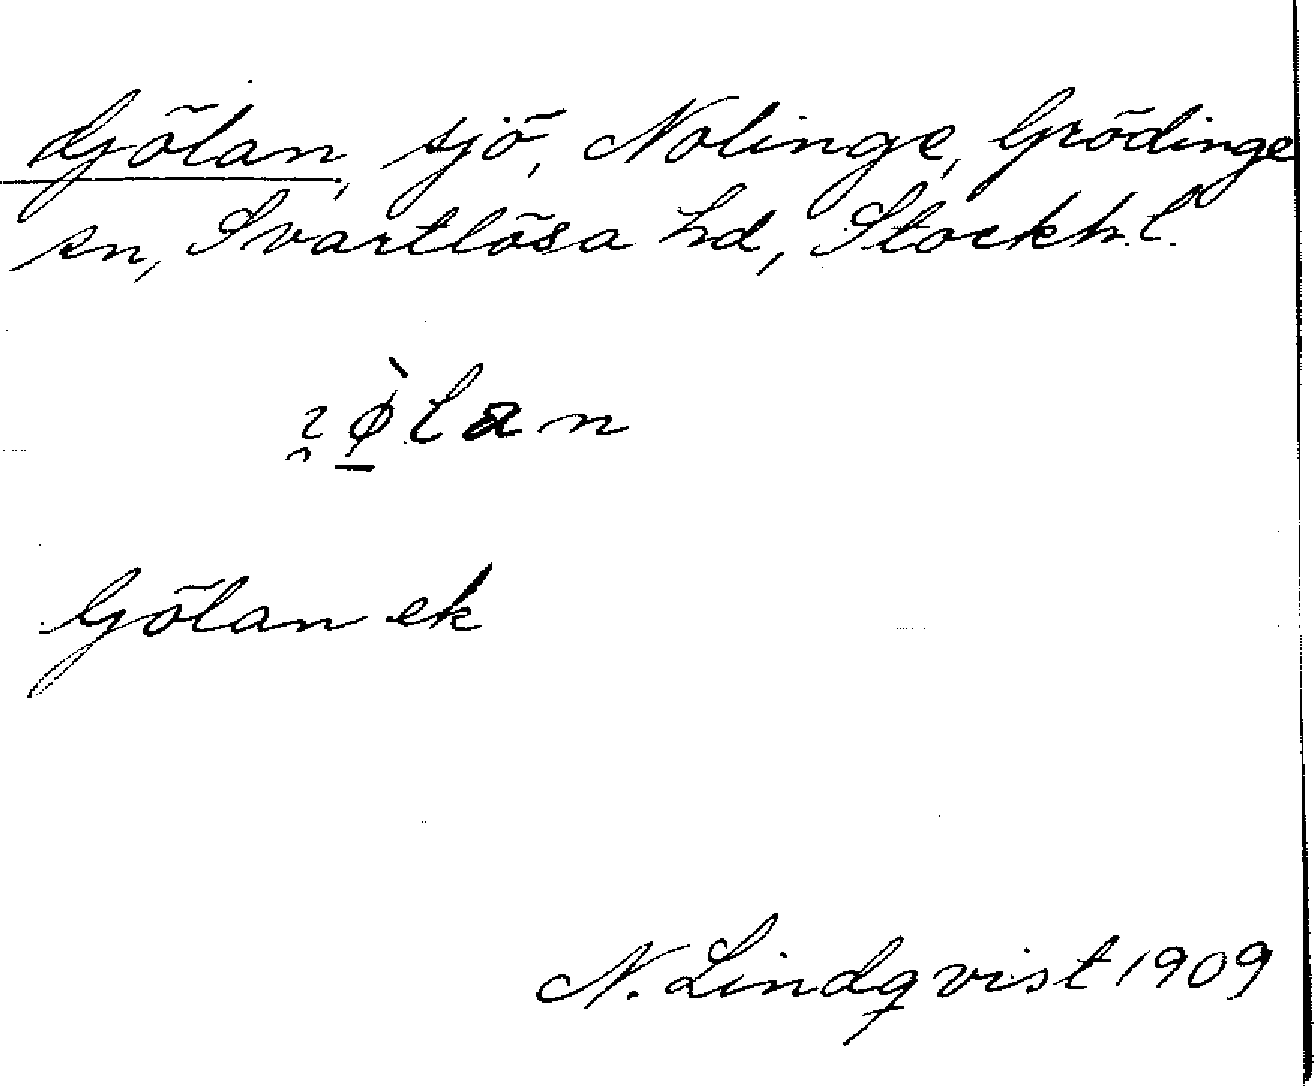 Gölan, sjö, Nolinge, Grödinge
sn, Svartlösa hd, Stockh. l.
Gölan ek
N. Lindqvist 1909